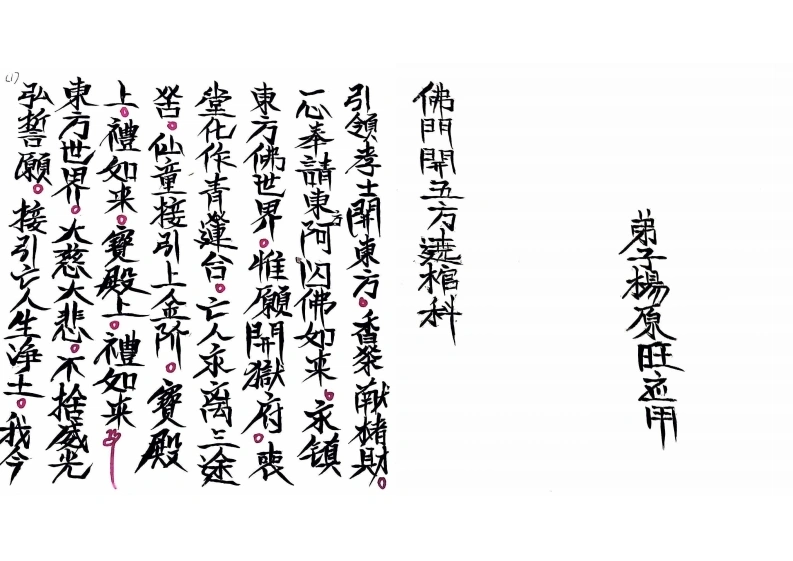 弟子楊原旺應用
佛門開五方遶棺科
引領孝士開東方。香茶献楮財。
一心奉請東方阿閦佛如来。永鎮
東方佛世界。惟願開獄府。喪
堂化作青蓮台。亡人永离三途
苦。仙童接引上金阶。寳殿
上。禮如来。寳殿上。禮如来
東方世界。大慈大悲。不捨威光
弘誓願。接引亡人生净土。我今
(1)